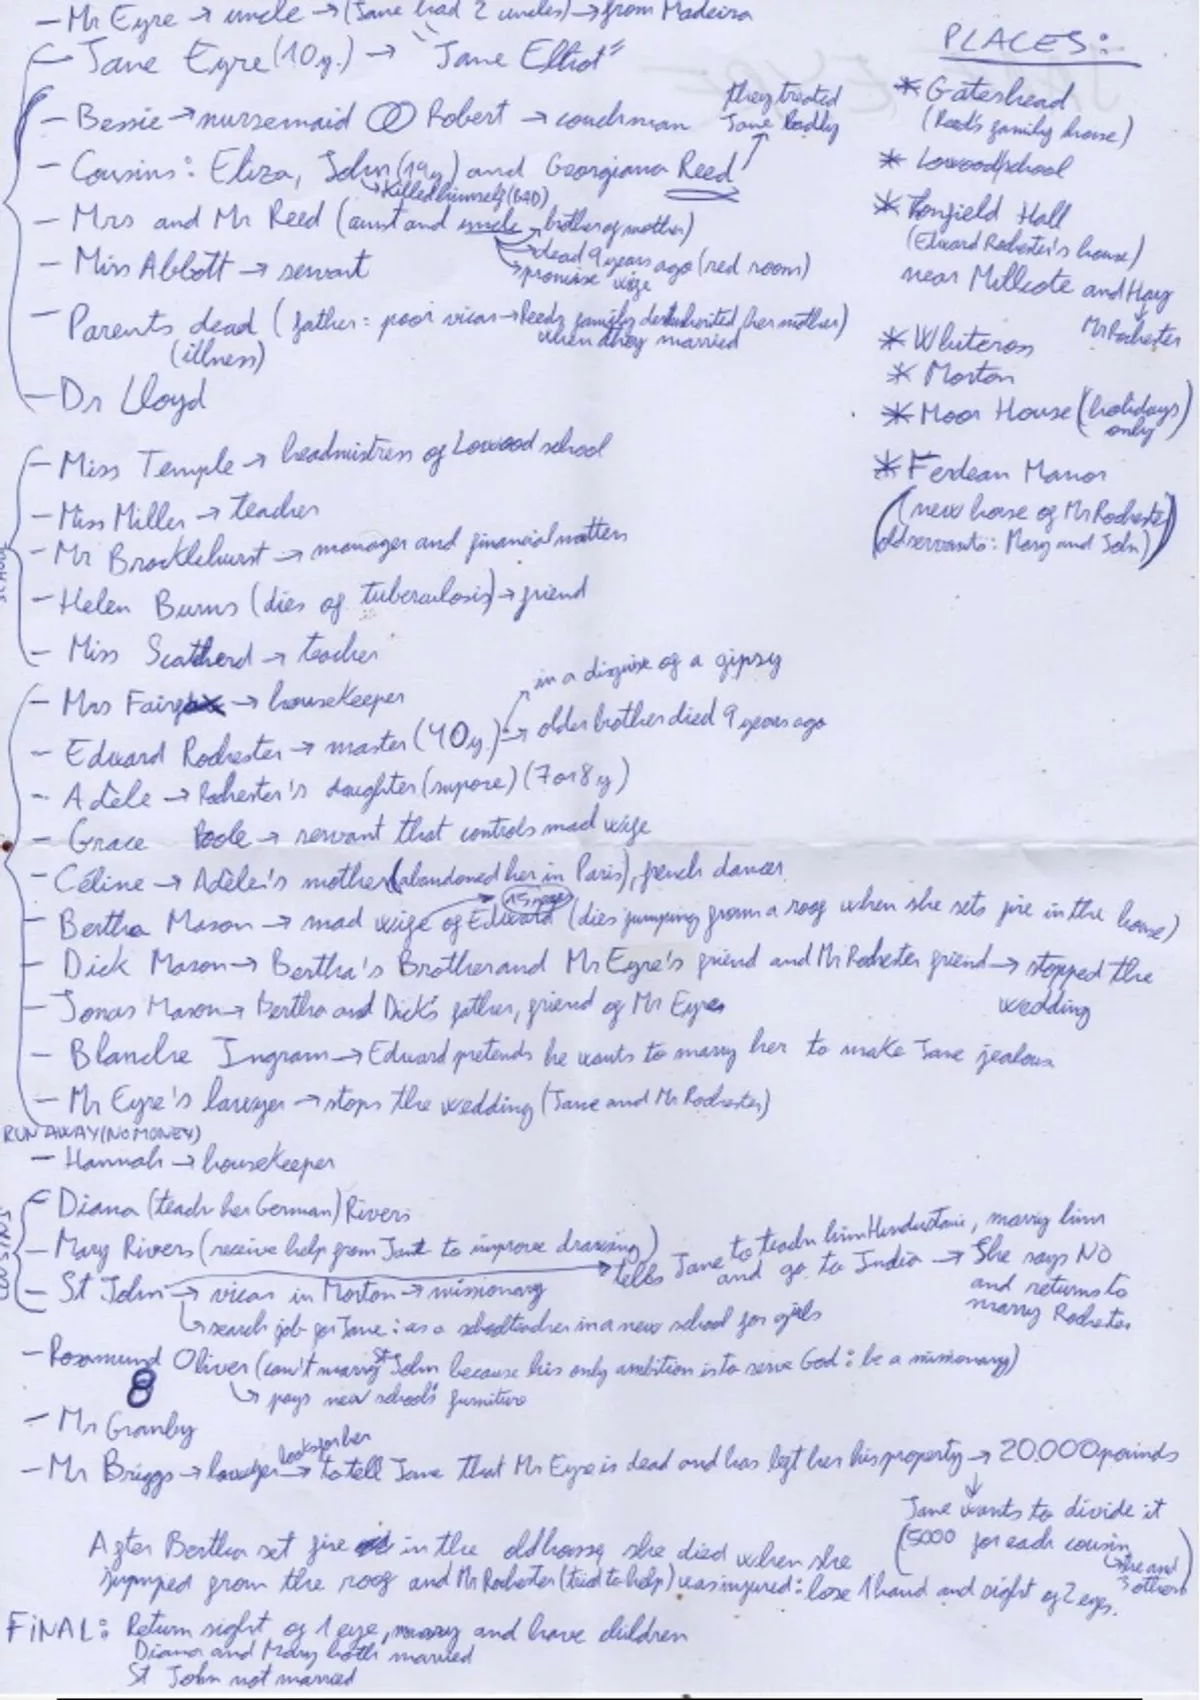 - Mr Eyre → uncle → (Jane had 2 uncles) → from Madeira
- Jane Eyre (10 y.) → "Jane Elliot"
- Bessie → nursemaid ⚭ Robert → coachman
they treated
Jane badly
- Cousins: Eliza, John (19 y) and Georgiana Reed
→ Killed himself (BAD)
- Mrs and Mr Reed (aunt and uncle → brother of mother)
→ dead 9 years ago (red room)
→ promise wife
- Miss Abbott → servant
- Parents dead (father = poor vicar → Reeds family desinherited her mother)
when they married
(illness)
- Dr Lloyd
SCHOOL
- Miss Temple → headmistress of Lowood school
- Miss Miller → teacher
- Mr Brocklehurst → manager and financial matters
- Helen Burns (dies of tuberculosis) → friend
- Miss Scatherd → teacher
- Mrs Fairfax → housekeeper
in a disguise of a gipsy
- Edward Rochester → master (40 y.) → older brother died 9 years ago
- Adèle → Rochester's daughter (supose) (7 or 8 y)
- Grace Poole → servant that controls mad wife
- Céline → Adèle's mother (abandoned her in Paris), french dancer
15 years
- Bertha Mason → mad wife of Edward (dies jumping from a roof when she sets fire in the house)
- Dick Mason → Bertha's Brother and Mr Eyre's friend and Mr Rochester friend → stopped the
wedding
- Jonas Mason → Bertha and Dick's father, friend of Mr Eyre
- Blanche Ingram → Edward pretends he wants to marry her to make Jane jealous
- Mr Eyre's lawyer → stops the wedding (Jane and Mr Rochester)
RUN AWAY (NO MONEY)
- Hannah → housekeeper
COUSINS
- Diana (teach her German) Rivers
- Mary Rivers (receive help from Jane to improve drawing)
- St John → vicar in Morton → missionary
→ tells Jane to teach him Hindustani, marry him
and go to India → She says NO
and returns to
marry Rochester
→ search job for Jane: as a schoolteacher in a new school for girls
- Rosamund Oliver (can't marry St John because his only ambition is to serve God: be a missionary)
8
→ pays new school's furniture
- Mr Granby
looks for her
- Mr Briggs → lawyer → to tell Jane that Mr Eyre is dead and has left her his property → 20.000 pounds
Jane wants to divide it
(5000 for each cousin
→ she and
3 others)
After Bertha set fire in the old house, she died when she
jumped from the roof and Mr Rochester (tried to help) was injured: lose 1 hand and sight of 2 eyes.
FINAL: Return sight of 1 eye, marry and have children
Diana and Mary both married
St John not married
PLACES:
* Gateshead
(Reed's family house)
* Lowood school
* Tonfield Hall
(Edward Rochester's house)
near Millcote and Hay
Mr Rochester
* Whitcross
* Morton
* Moor House (holidays
only)
* Ferdean Manor
(new house of Mr Rochester
old servants: Mary and John)